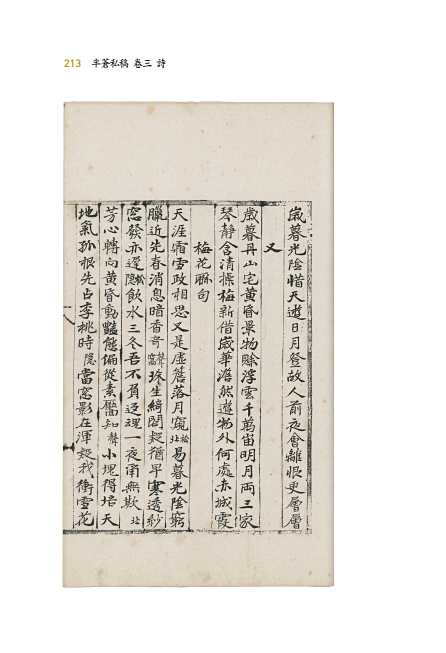 213 半蒼私稿 卷三 詩
歲暮光陰惜天遊日月登故人前夜會離恨更層層
又
歲暮丹山宅黃昏景物賖浮雲千萬宙明月两三家
琴靜含清操梅新借歲華澹然遊物外何處赤城霞
梅花聯句
天涯霜雪政相思又是虛簷落月窺北松易暮光陰窮
臘近先春消息暗香奇窩聲珠生綺閣疑猶早寒透紗
窓發亦遲隱松飲水三冬吾不負逕理一夜甭無欺北
芳心轉向黃昏動豔態偏從素靨知聲小埋得培天
地氣孤根先占李桃時隱當窓影在渾疑我衝雪花